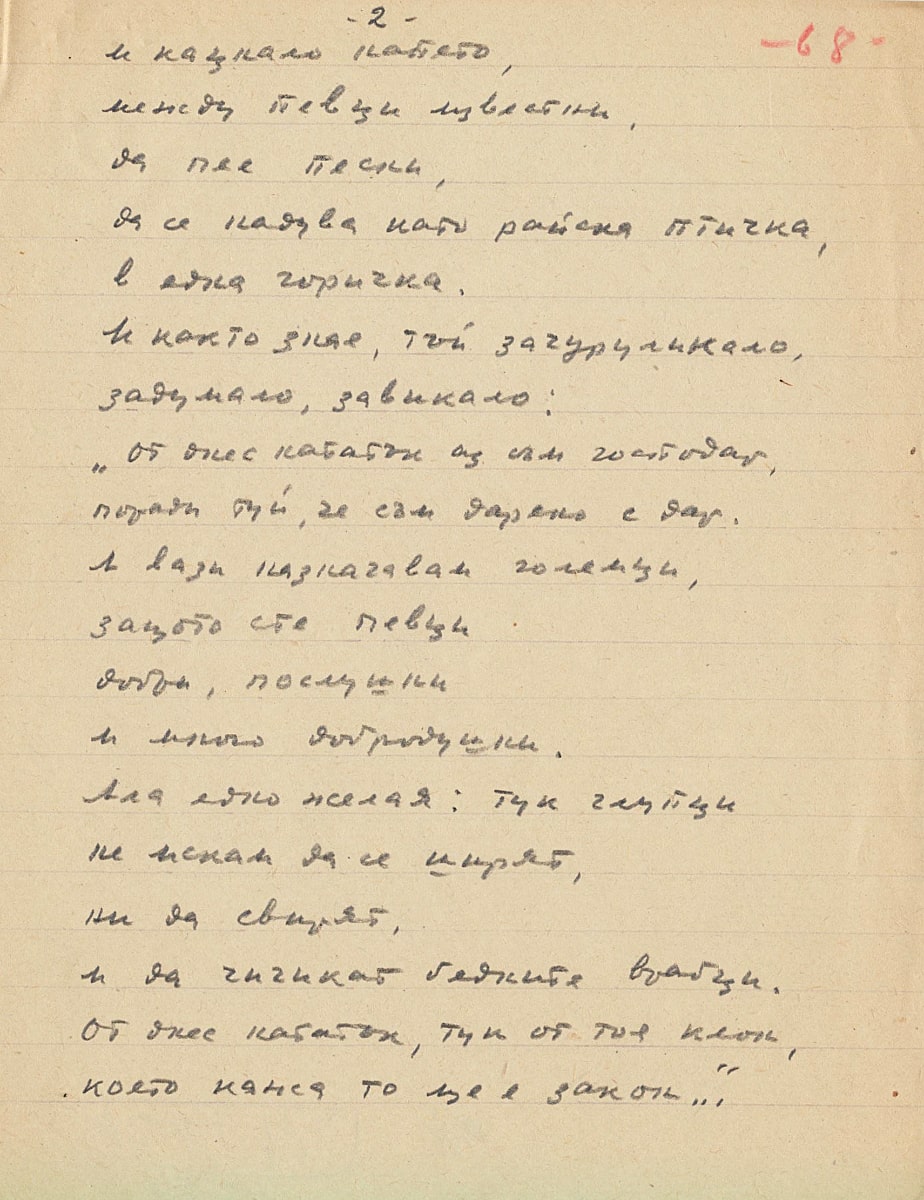 - 2 -
- 68 -
и кацнало където,
между певци известни,
да пее песни,
да се надува като райска птичка,
в една горичка.
И както знае, той зачурулинало,
задумало, завикало:
„От днес нататък аз съм господар,
поради туй, че съм дарено с дар.
И вази назначавам големци,
защото сте певци
добри, послушни
и много добродушни.
Ала едно желая: тук глупци
не искам да се ширят,
ни да свирят,
и да чичикат бедните врабци.
От днес нататък, тук от тоя клон,
което кажа то ще е закон..."